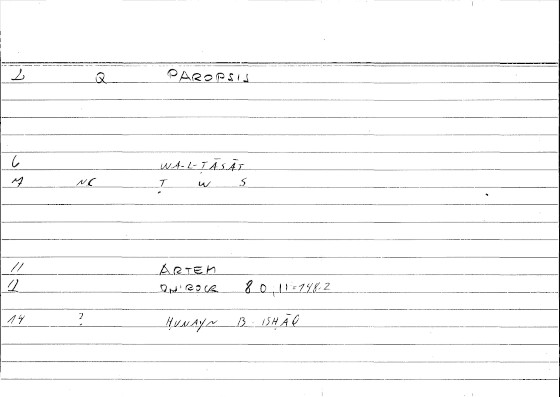 2 Q PAROPSIS
6 WA-L-ṬĀSĀT
7 NC Ṭ W S
11 ARTEM
ONIROCR 80,11=148.2
14 ? ḤUNAYN B ISḤĀQ